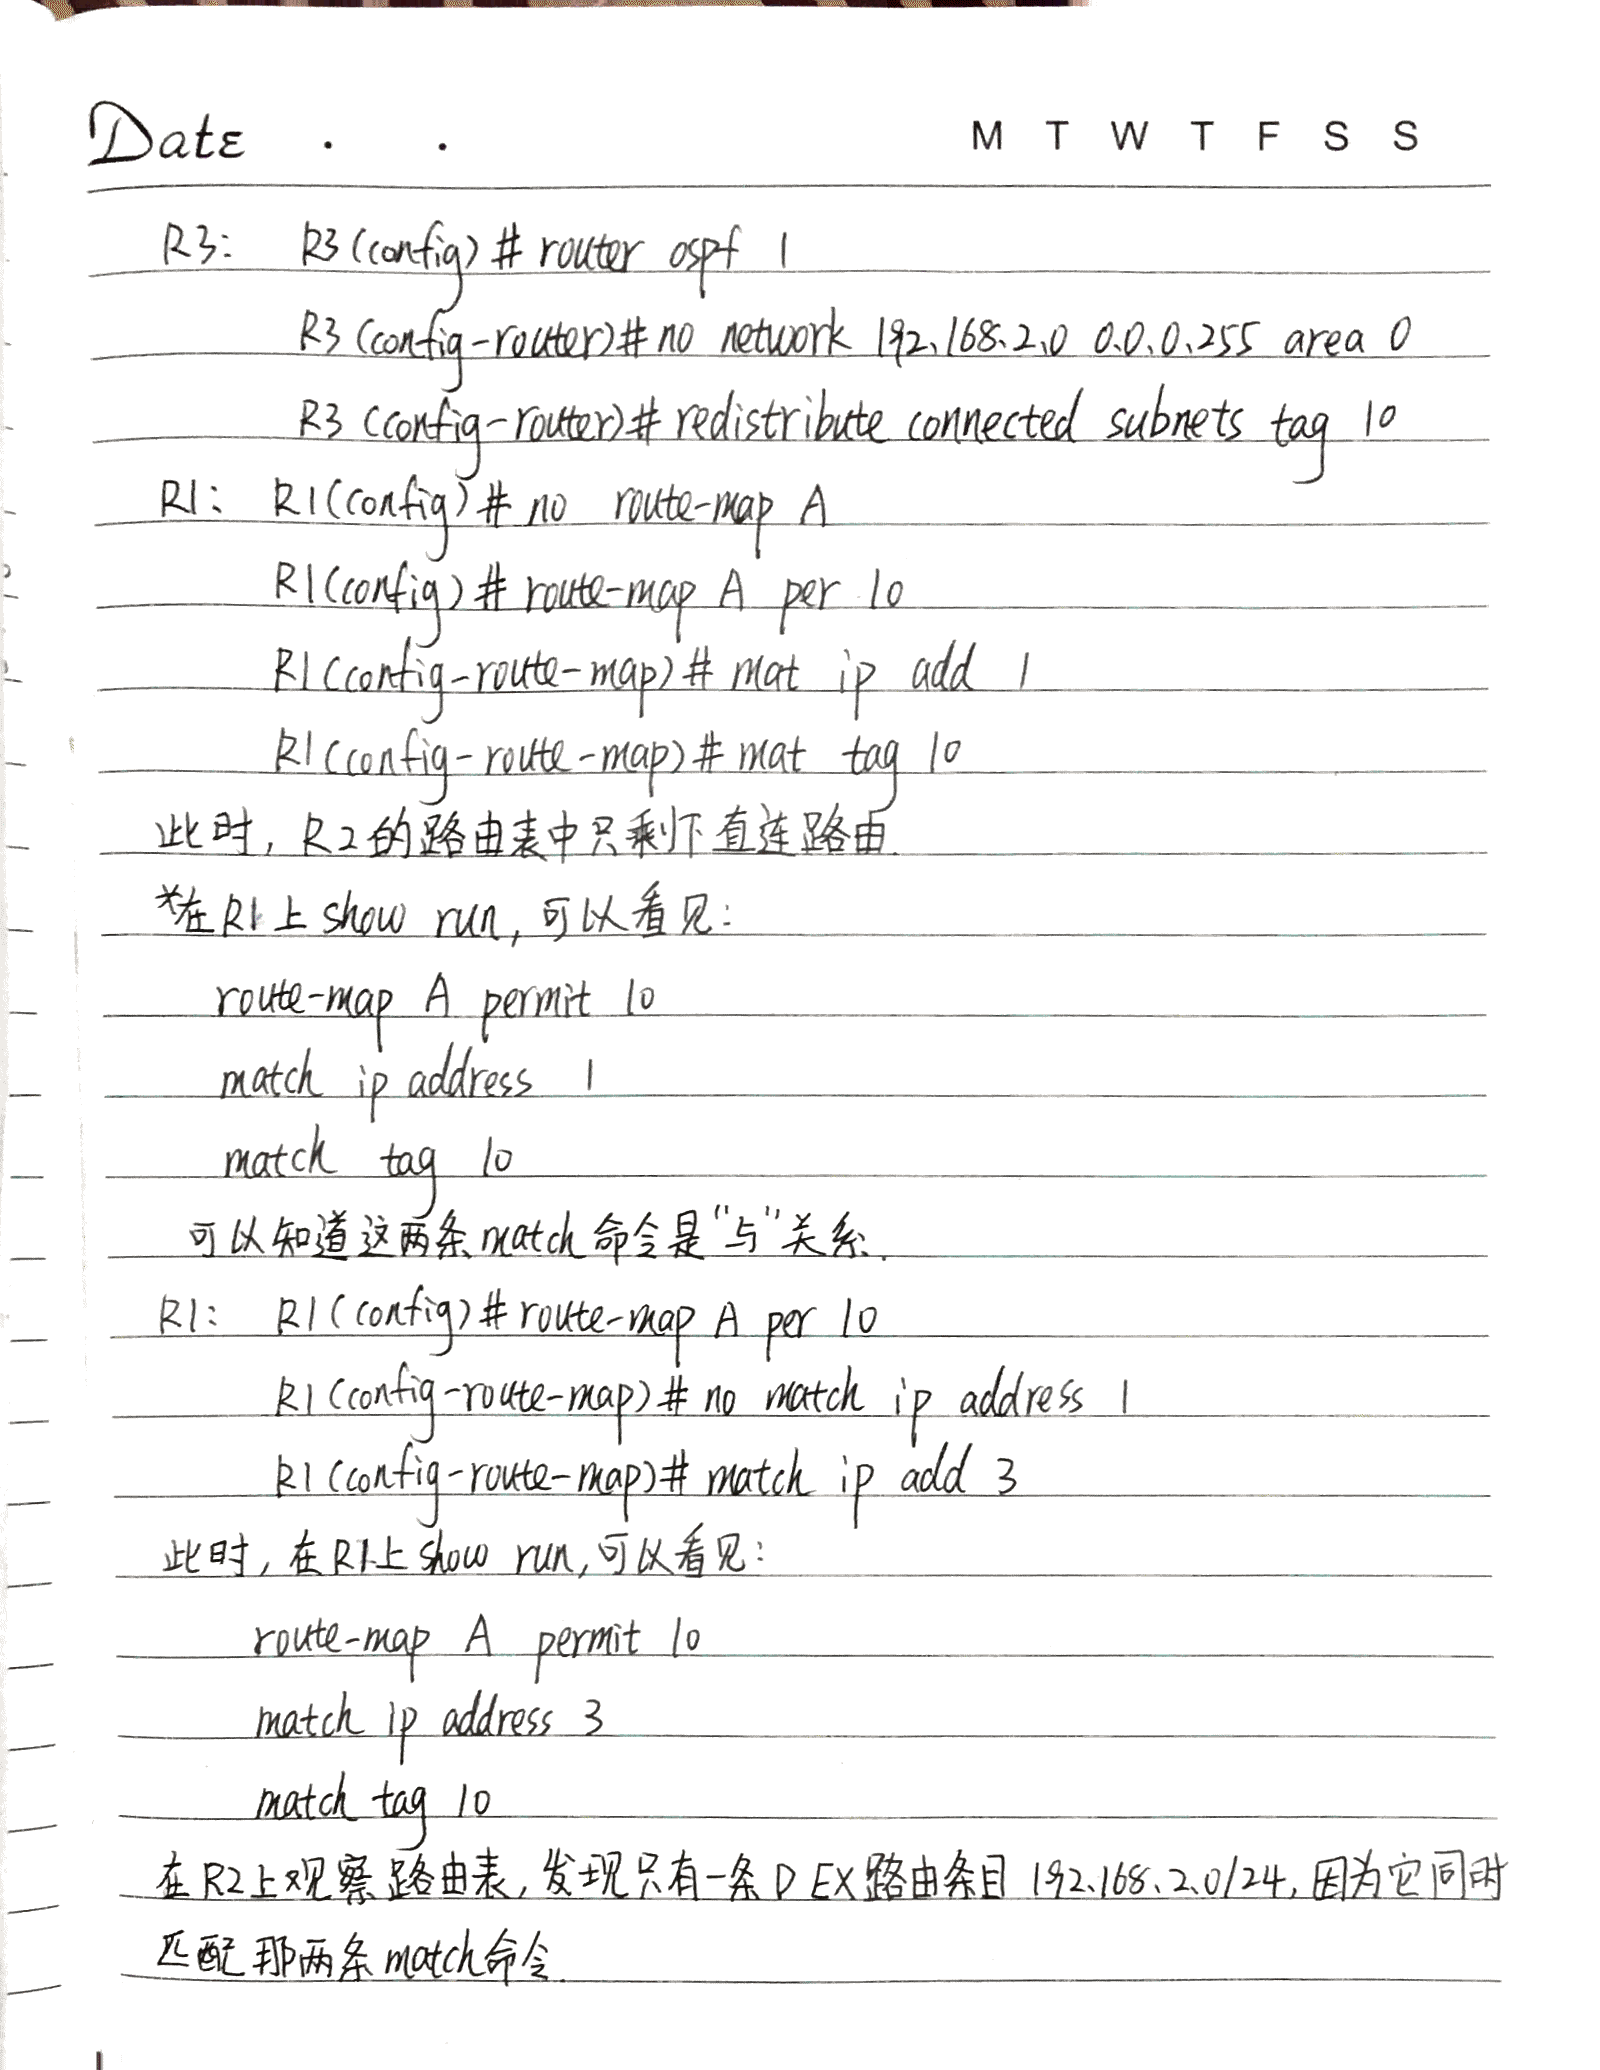 Date . . M T W T F S S
R3: R3(config)# router ospf 1
R3(config-router)# no network 192.168.2.0 0.0.0.255 area 0
R3(config-router)# redistribute connected subnets tag 10
R1: R1(config)# no route-map A
R1(config)# route-map A per 10
R1(config-route-map)# mat ip add 1
R1(config-route-map)# mat tag 10
此时，R2的路由表中只剩下直连路由.
*在R1上show run,可以看见:
route-map A permit 10
match ip address 1
match tag 10
可以知道这两条match命令是"与"关系.
R1: R1(config)# route-map A per 10
R1(config-route-map)# no match ip address 1
R1(config-route-map)# match ip add 3
此时，在R1上show run,可以看见:
route-map A permit 10
match ip address 3
match tag 10
在R2上观察路由表,发现只有一条D EX路由条目192.168.2.0/24,因为它同时
匹配那两条match命令.